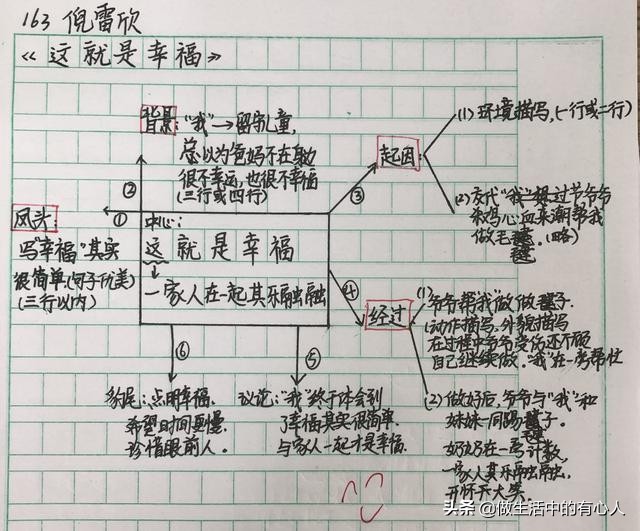 163 倪雷欣
《这就是幸福》
背景:“我”→留守儿童,
总以为爸妈不在身边
很不幸运,也很不幸福
(三行或四行)
②
起因:
③
(1) 环境描写,(一行或二行)
(2) 交代“我”想过节爷爷
杀鸡心血来潮帮我
做毛毽。(略)
凤头:
①
写“幸福”其实
很简单(句子优美)
(三行以内)
中心:
这就是幸福
一家人在一起其乐融融
④
经过
(1) 爷爷帮“我”做做毽子.
(动作描写、外貌描写
在过程中爷爷受伤还不顾
自己继续做。“我”在一旁帮忙
(2) 做好后,爷爷与“我”和
妹妹一同踢毽子。
毽
奶奶在一旁计数,
一家人其乐融融融,
开怀大笑.
⑥
豹尾:点明幸福,
希望时间更慢,
珍惜眼前人。
⑤
议论:“我”终于体会到
了幸福其实很简单.
与家人一起才是幸福.
头条@做生活中的有心人